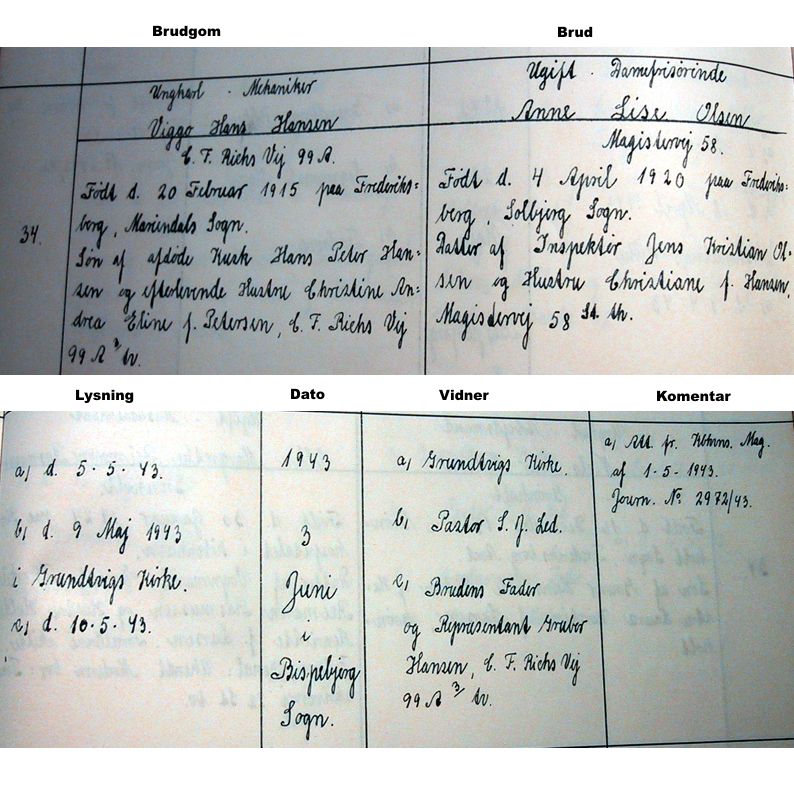 Brudgom
Brud
34.
Ungkarl - Mekaniker
Viggo Hans Hansen
C. F. Richs Vej 99 A.
Født d. 20 Februar 1915 paa Frederiks=
berg, Mariendals Sogn.
Søn af afdøde Kusk Hans Peter Han=
sen og efterlevende Hustru Christine An=
drea Eline f. Petersen, C. F. Richs Vej
99 A 3/ tv.
Ugift - Damefrisørinde
Anne Lise Olsen
Magistervej 58.
Født d. 4 April 1920 paa Frederiks=
berg, Solbjerg Sogn.
Datter af Inspektør Jens Kristian Ol=
sen og Hustru Christiane f. Hansen,
Magistervej 58 St. th.
Lysning
Dato
Vidner
Komentar
a, d. 5-5-43.
b, d. 9 Maj 1943
i Grundtvigs Kirke.
c, d. 10-5-43.
1943
3
Juni
Bispebjerg
Sogn.
a, Grundtvigs Kirke.
b, Pastor S. J. Led.
c, Brudens Fader
og Repræsentant Gruber
Hansen, C. F. Richs Vej
99 A 3/ tv.
a, Att. fr. Kbhvns. Mag.
af 1-5-1943.
Journ. No 2972/43.